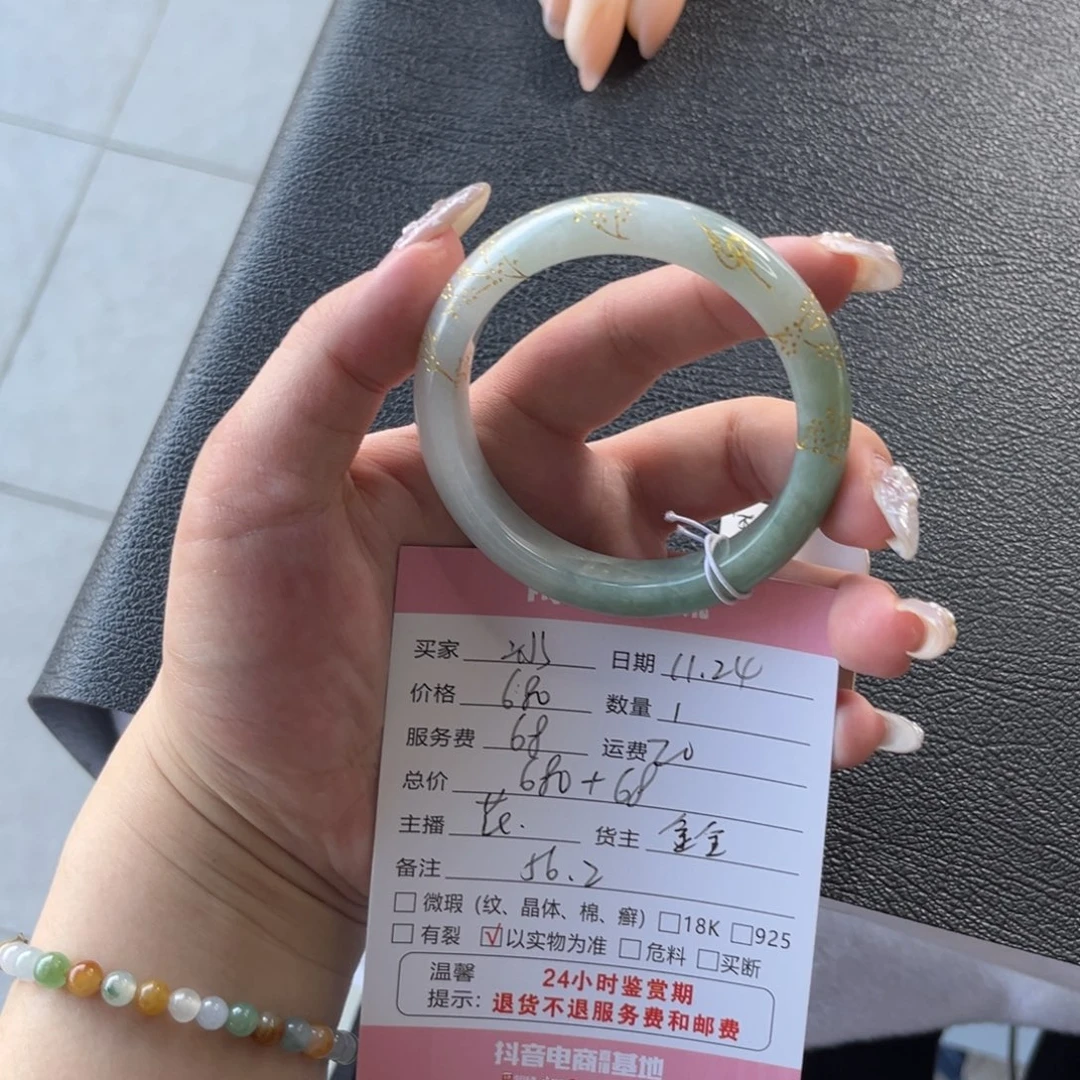 买家 冰 日期 11.24
价格 680 数量 1
服务费 68 运费 20
总价 680+68
主播 花. 货主 金金
备注 56.2
□ 微瑕（纹、晶体、棉、癣） □18K □925
□ 有裂 ☑以实物为准 □危料 □买断
温馨提示：
24小时鉴赏期
退货不退服务费和邮费
抖音电商直播基地